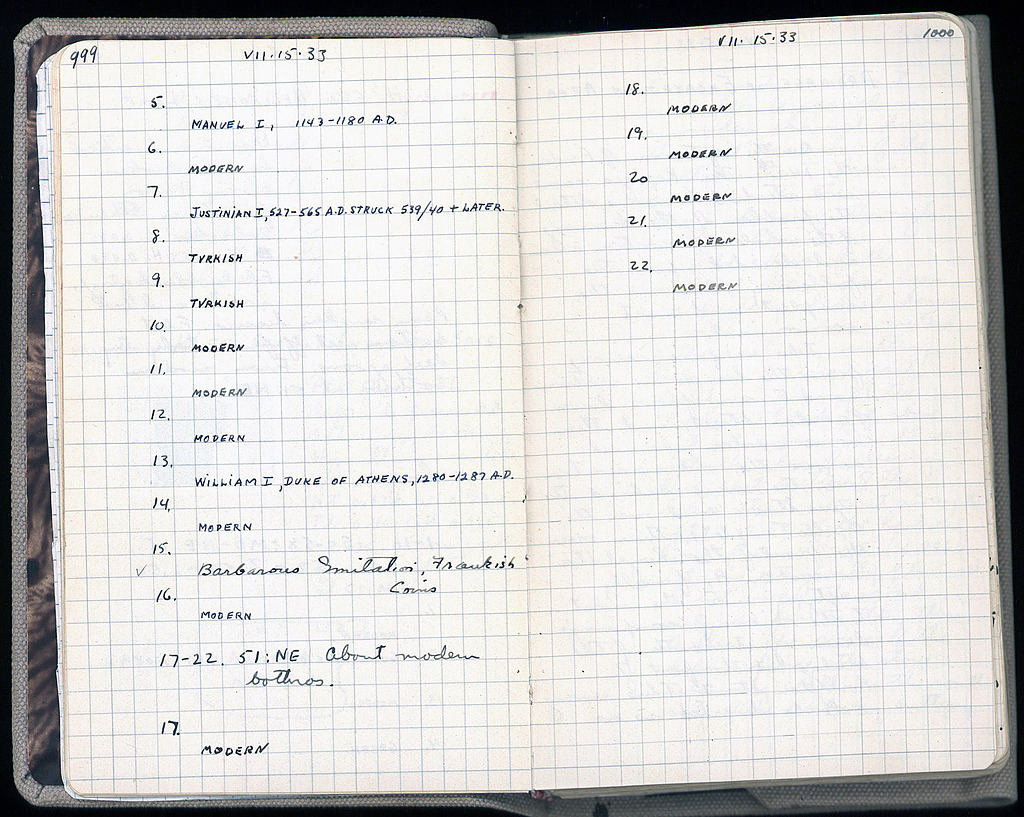 999
VII·15·33
5.
MANUEL I, 1143-1180 A.D.
6.
MODERN
7.
JUSTINIAN I, 527-565 A.D. STRUCK 539/40 + LATER.
8.
TVRKISH
9.
TVRKISH
10.
MODERN
11.
MODERN
12.
MODERN
13.
WILLIAM I, DUKE OF ATHENS, 1280-1287 A.D.
14.
MODERN
15.
✓ Barbarous Imitation, Frankish
Coins
16.
MODERN
17-22. 51:NE About modern
bothros.
17.
MODERN
VII·15·33
1000
18.
MODERN
19.
MODERN
20
MODERN
21.
MODERN
22.
MODERN